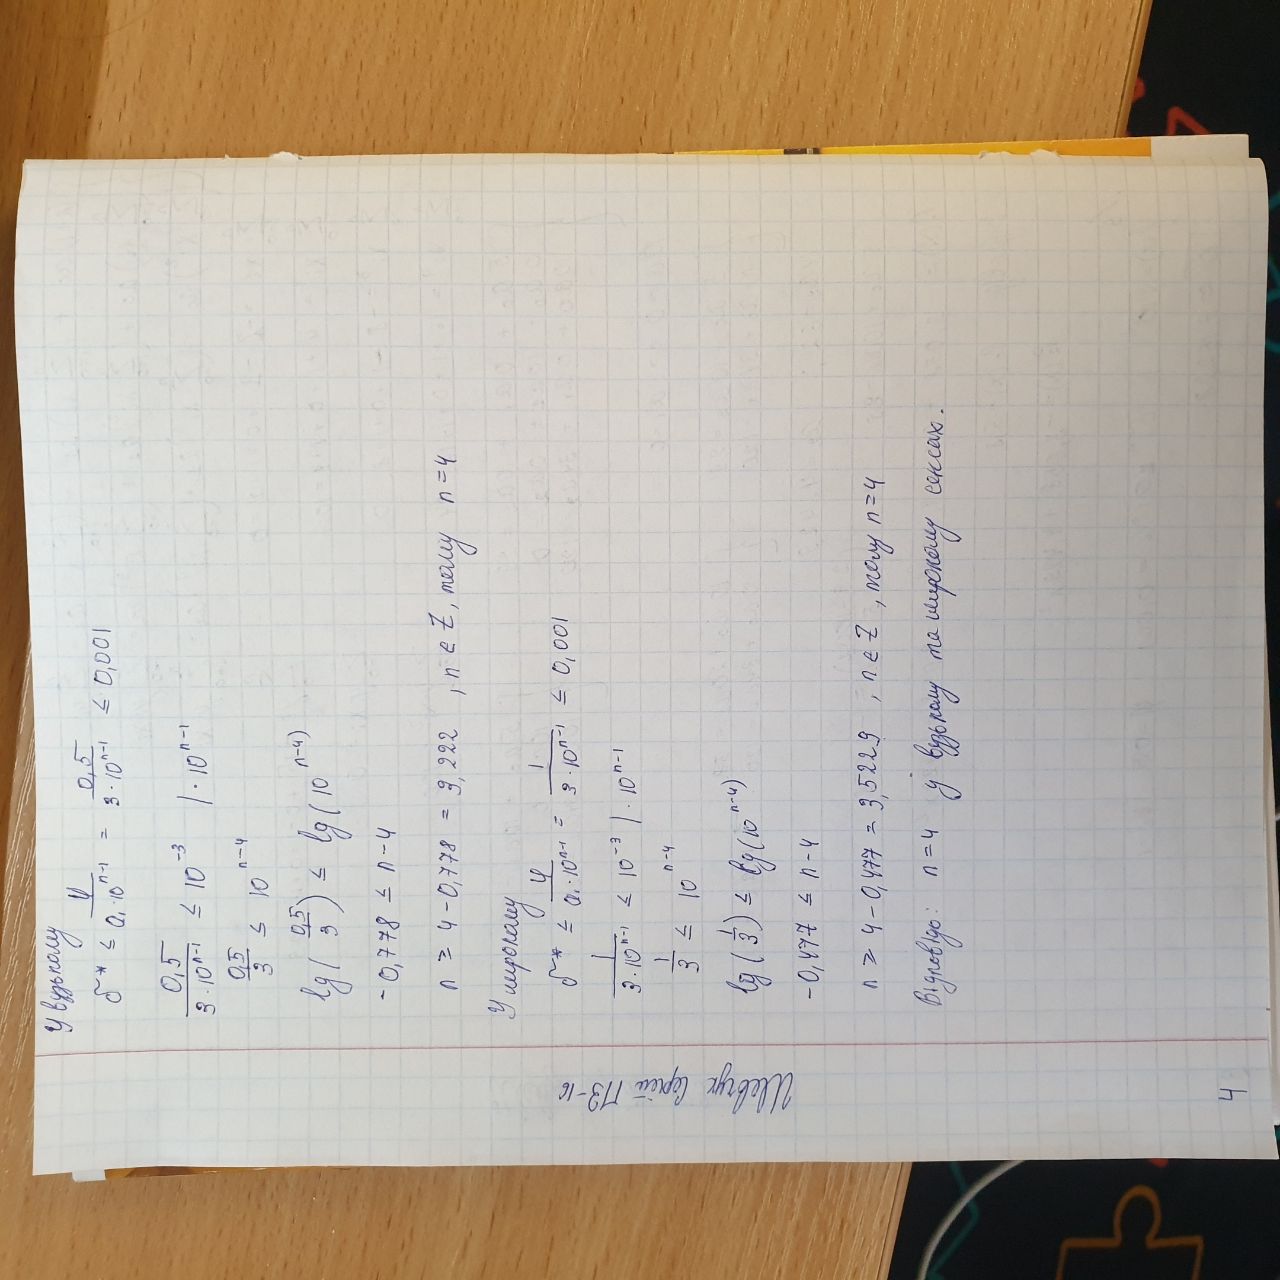 У вузькому
δ* ≤ φ/(a₁·10^(n-1)) = 0,5/(3·10^(n-1)) ≤ 0,001
0,5/(3·10^(n-1)) ≤ 10^(-3) | ·10^(n-1)
0,5/3 ≤ 10^(n-4)
lg(0,5/3) ≤ lg(10^(n-4))
-0,778 ≤ n-4
n ≥ 4-0,778 = 3,222 , n ∈ Z, тому n=4
У широкому
δ* ≤ φ/(a₁·10^(n-1)) = 1/(3·10^(n-1)) ≤ 0,001
1/(3·10^(n-1)) ≤ 10^(-3) | ·10^(n-1)
1/3 ≤ 10^(n-4)
lg(1/3) ≤ lg(10^(n-4))
-0,477 ≤ n-4
n ≥ 4-0,477 = 3,5229 , n∈Z , тому n=4
Відповідь: n=4 у вузькому та широкому сенсах.
Шевчук Сергій ПЗ-16
4